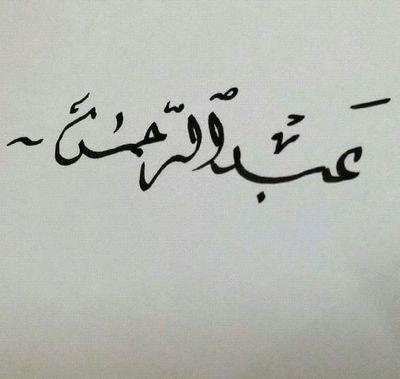 عَبْدُ الرَّحمٰن